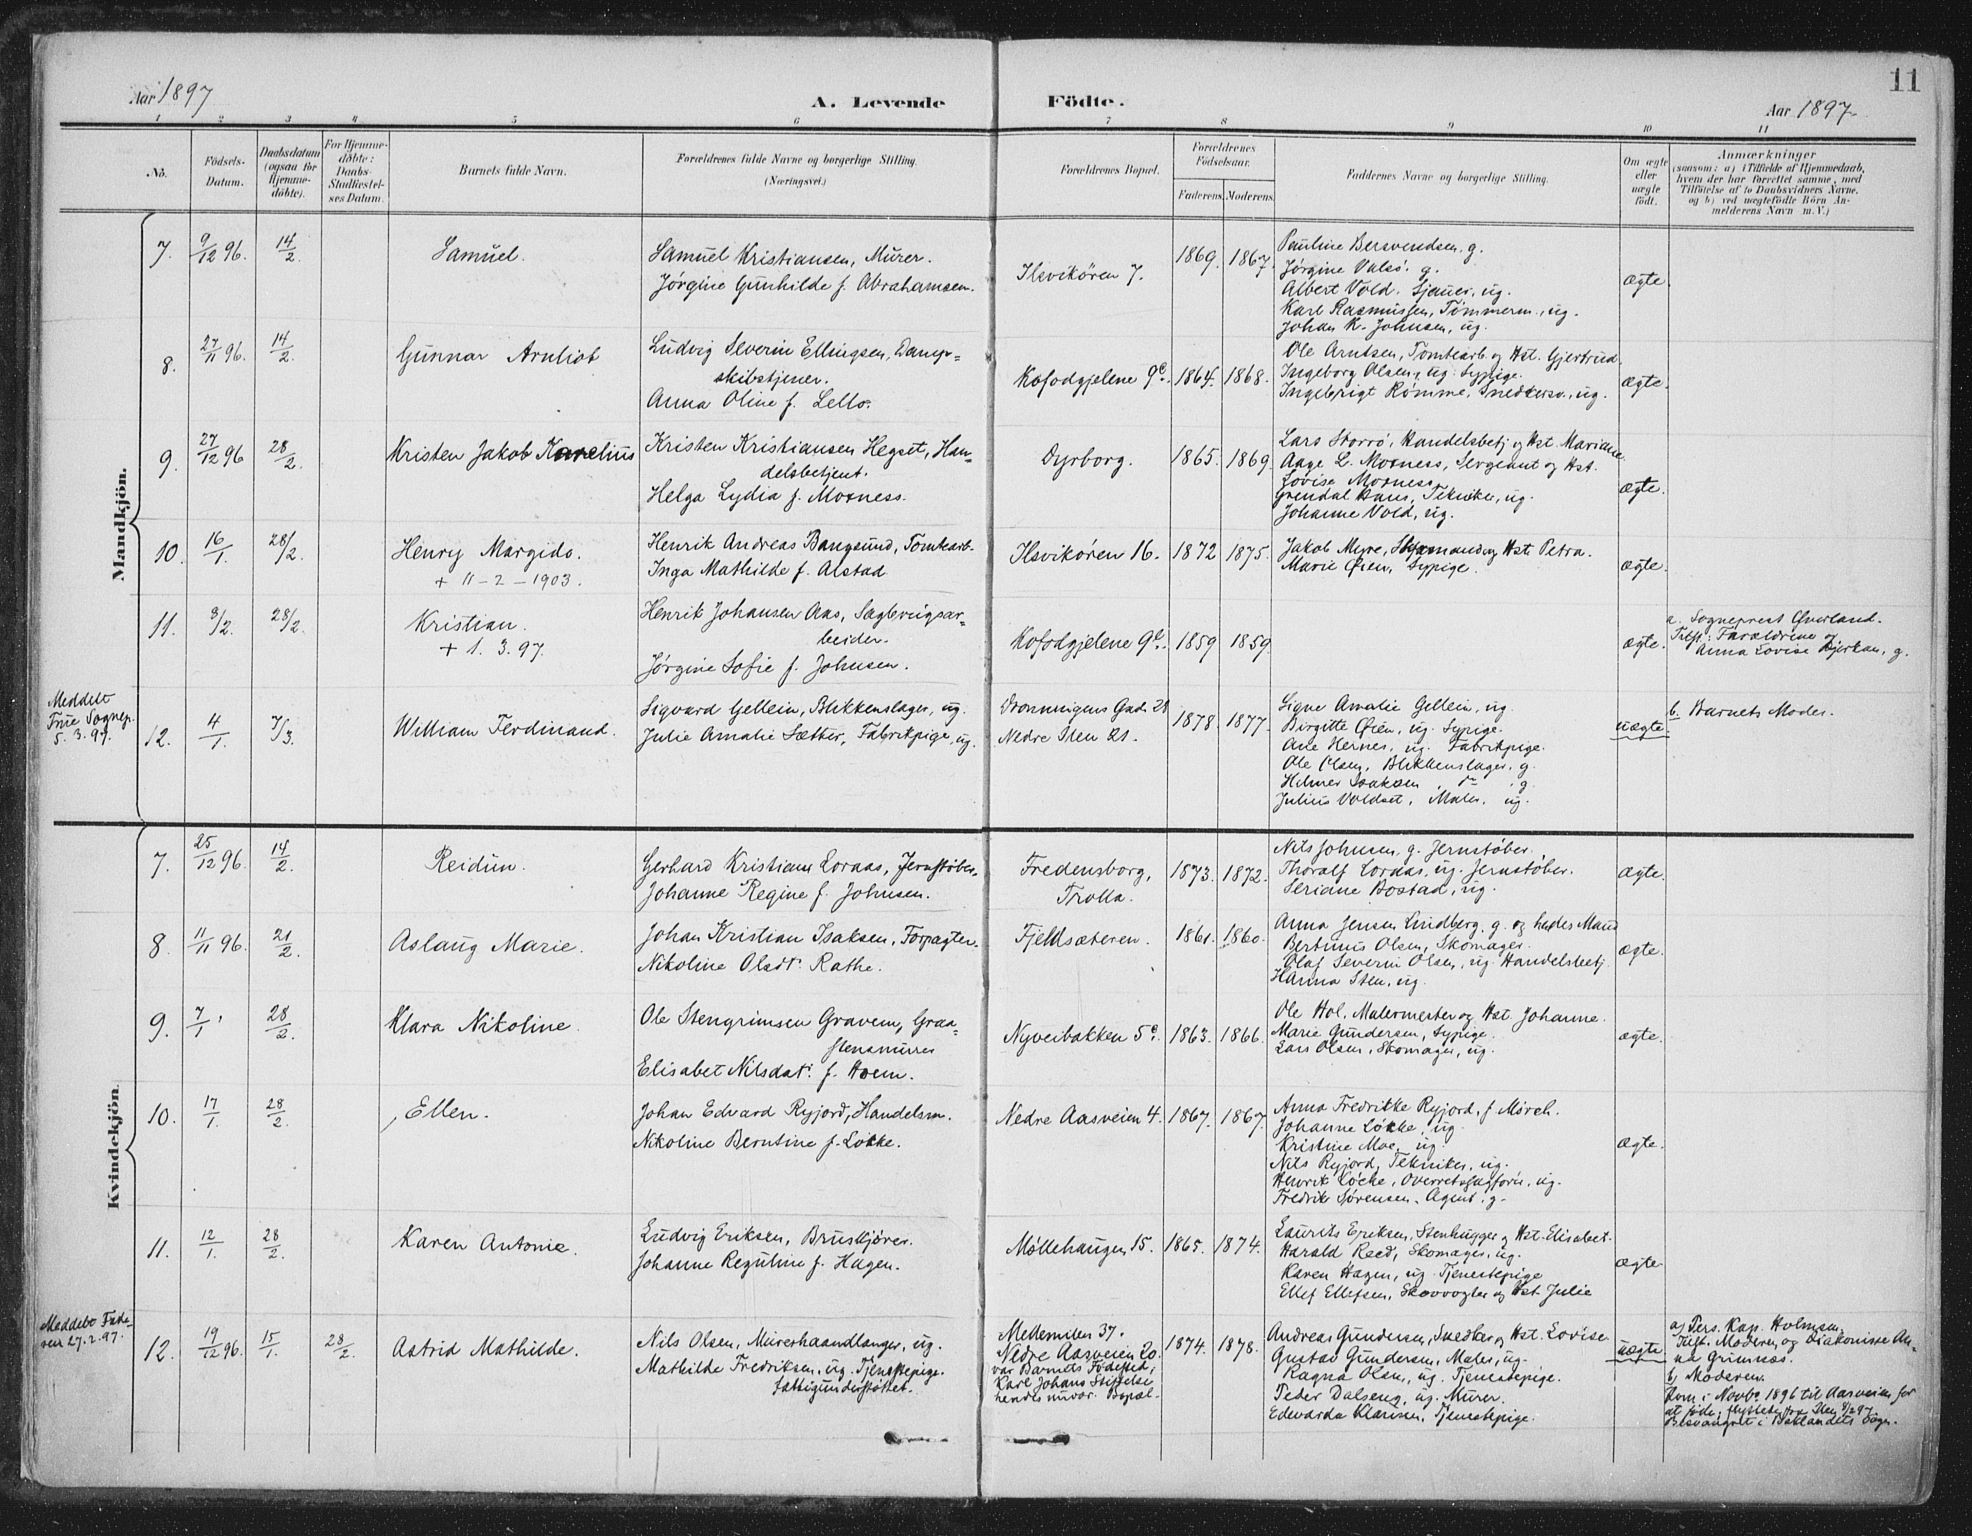 11
Aar 1897
A. Levende Födte.
Aar 1897.
1 2 3 4 5 6 7 8 9 10 11
No.
Födsels-Datum.
Daabsdatum (ogsaa for Hjemme-döbte).
For Hjemme-döbte: Daabs-Stadfæstel-ses Datum.
Barnets fulde Navn.
Forældrenes fulde Navne og borgerlige Stilling.
(Næringsvei.)
Forældrenes Bopæl.
Forældrenes Födselsaar.
Faderens. Moderens.
Faddernes Navne og borgerlige Stilling.
Om ægte eller uægte födt.
Anmærkninger
(saasom: a) i Tilfælde af Hjemmedaab,
hvem der har forrettet samme, med
Tilföielse af to Daabsvidners Navne.
og b) ved uægtefödte Börn An-
melderens Navn m. V.)
Mandkjön.
7. 9/12 96. 14/2 Samuel.
Samuel Kristiansen, Murer.
Jørgine Gunhilde f. Abrahamsen.
Ilsvikøren 7. 1869. 1867.
Pauline Bersvendsen, g.
Jørgine Valsø. g.
Albert Vold. Sjauer, ug.
Karl Rasmussen, Tømmerm., ug.
Johan K. Johnsen, ug.
ægte.
8. 27/11 96. 14/2 Gunnar Arnliot
Ludvig Severin Ellingsen, Damp-
skibstjener.
Anna Oline f. Lello.
Kofodgjelene 9c. 1864. 1868.
Ole Arntsen, Tomtearb. og Hst. Gjertrud.
Ingeborg Olsen, ug. Sypige.
Ingebrigt Rømme, Snedkersv., ug.
ægte.
9. 27/12 96 28/2 Kristen Jakob Kornelius
Kristen Kristiansen Hegset, Han-
delsbetjent.
Helga Lydia f. Moxness.
Dyrborg. 1865. 1869.
Lars Storrø, Handelsbetj. og Hst. Mariane
Aage L. Moxness, Sergeant og Hst.
Lovise Moxness.
Grendal Hans, Tekniker, ug.
Johanne Vold, ug.
ægte.
10. 16/1. 28/2 Henry Margido.
+ 11-2-1903.
Henrik Andreas Bangsund, Tomtearb.
Inga Mathilde f. Alstad
Ilsvikøren 16. 1872 1875.
Jakob Myre, Styrmand og Hst. Petra.
Marie Øien, Sypige.
ægte.
11. 3/2. 28/2. Kristian.
+ 1. 3. 97.
Henrik Johansen Aas, Sagbrugsar-
beider.
Jørgine Sofie f. Johnsen.
Kofodgjelene 9c. 1859 1859.
ægte.
a. Sogneprest Qverland.
Tilst: Forældrene
Anna Lovise Bjerkan, g.
Meddelt
Frue Sognep.
5. 3. 97.
12. 4/1. 7/3. William Ferdinand.
Sigvard Gellein, Blikkenslager, ug.
Julie Amalie Sæther, Fabrikpige, ug.
Dronningens Gade 28
Nedre Ilen 21.
1878. 1877.
Signe Amalie Gellein, ug.
Birgitte Øien, ug. Sypige.
Ane Hernes, ug. Fabrikpige.
Ole Olsen, Blikkenslager, g.
Hilmer Isaksen, do. g.
Julius Voldset, Maler, ug.
uægte.
b. Barnets Moder.
Kvindekjön.
7. 25/12 96. 14/2 Reidun.
Gerhard Kristians Loraas, Jernstøber.
Johanne Regine f. Johnsen.
Fredensborg,
Trolla.
1873. 1872.
Nils Johnsen, g. Jernstøber.
Thoralf Loraas, ug. Jernstøber.
Seriane Bostad, ug.
ægte.
8. 11/11 96. 21/2. Aslaug Marie.
Johan Kristian Isaksen, Forpagter.
Nikoline Olsdtr Rathe.
Fjeldsæteren. 1861. 1860.
Anna Jensen Lindberg, g. og hendes Mand
Bertinus Olsen, Skomager.
Olaf Severin Olsen, ug. Handelsbetj.
Hanna Sten, ug.
ægte.
9. 7/1. 28/2. Klara Nikoline.
Ole Stengrimsen Gravem, Graa-
stensmurer
Elisabet Nilsdatr. f. Hoem.
Nyveibakken 5c. 1863. 1866.
Ole Hol, Malermester og Hst. Johanne.
Marie Gundersen, Sypige.
Lars Olsen, Skomager, ug.
ægte.
10. 17/1. 28/2. Ellen.
Johan Edvard Ryjord, Handelsm.
Nikoline Berntine f. Løkke.
Nedre Aasveien 4. 1867. 1867.
Anna Fredrikke Ryjord, f. Mørch.
Johanne Løkke, ug.
Kristine Moe, ug.
Nils Ryjord, Tekniker, ug.
Henrik Løcke, Overretssagfører, ug.
Fredrik Sørensen, Agent, g.
ægte.
11. 12/1. 28/2. Karen Antonie.
Ludvig Eriksen, Bruskjører.
Johanne Reguline f. Hagen.
Møllehaugen 15. 1865. 1874.
Laurits Eriksen, Stenhugger og Hst. Elisabet.
Harald Reed, Skomager, ug.
Karen Hagen, ug. Tjenestepige
Ellef Ellefsen, Skovvogter og Hst. Julie
ægte.
Meddelt Fade-
ren 27.2.97.
12. 19/12 96. 15/1. 28/2. Astrid Mathilde.
Nils Olsen, Murerhaandlanger, ug.
Mathilde Fredriksen, ug. Tjenestepige.
fattigunderstøttet.
Mellemilen 37.
Nedre Aasveien 20.
var Barnets Fødested;
Karl Johans Stiftelse
hendes nuvær. Bopæl.
1874. 1878.
Andreas Gundersen, Snedker og Hst. Lovise.
Gustav Gundersen, Maler, ug.
Ragna Olsen, ug. Tjenestepige.
Peder Dalseng, ug. Murer.
Edvarda Klarisen, Tjenestepige.
uægte
a) Pers. Kap. Holmsen,
Tilst. Moderen og Diakonisse An-
na Grimnæs.
b) Moderen.
Kom i Novbr. 1896 til Aasveien for
at føde, flyttede fra Ilen 4/2 97
Besvangret i Baklandets Sogn.